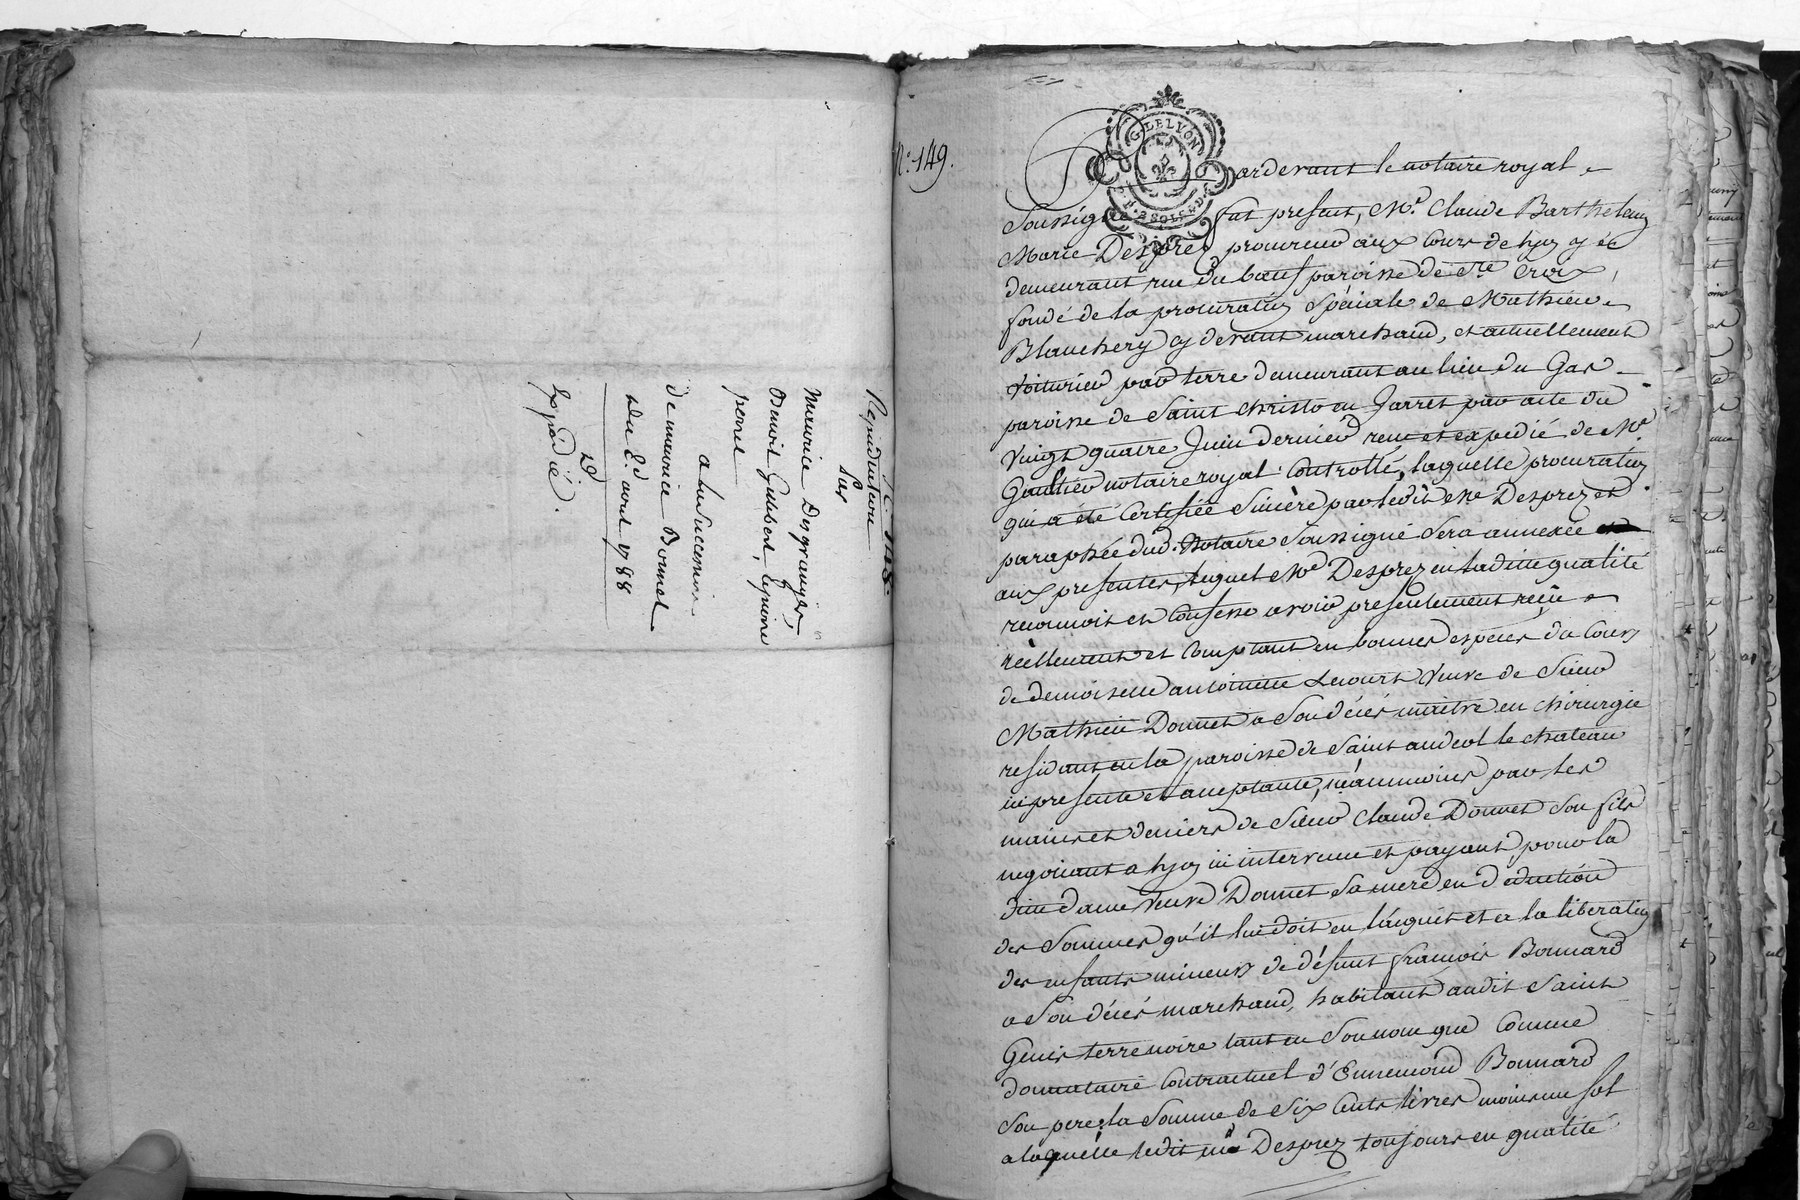 Repudiation
Par
Maurice Desgranges,
Benoit Guibert, Lepoine
pere
a la succession
de maurice Bonnet
Du 2d. aout 1788
19
Expédié.
N°. 149.
G. DE LYON
Pardevant le notaire royal
Soussigné fut present, Me. Claude Barthelemy
Marie Desprez procureur aux Cours de lyon y
demeurant rue du boeuf paroisse de Ste Croix,
fondé de la procuration Spéciale de Mathieu
Blanchery cy devant marchand, et actuellement
voiturier par terre demeurant au lieu du Gas
paroisse de Saint Christo en Jarret par acte du
vingt quatre Juin dernier reçu et expedié de Me.
Gaultier notaire royal Controllé, laquelle procuration
qui a été Certifiée Sincère par ledit Me Desprez et
paraphée dud. Notaire Soussigné Sera annexée
aux presentes, lequel Me Desprez en ladite qualité
reconnoit et Confesse avoir presentement reçu
réellement et Comptant en bonnes especes du Cours
de demoiselle antoinette Lecourt veuve de Sieur
Mathieu Donnet a Son décés maitre en chirurgie
residant en la paroisse de Saint andeol le chateau
ici presente et acceptante, néanmoins par les
mains et deniers de Sieur Claude Donnet Son fils
negociant a lyon ici intervenu et payant pour la
ditte dame veuve Donnet Sa mere en déduction
des Sommes qu'il lui doit en l'acquit et a la liberation
des enfants mineurs de défunt françois Bonnard
a Son décés marchand, habitant audit Saint
Genis terre noire tant en Son nom que Comme
donnataire Contractuel d'Ennemond Bonnard
Son pere, la Somme de Six Cents livres moins un sol
a laquelle ledit me Desprez toujours en qualité